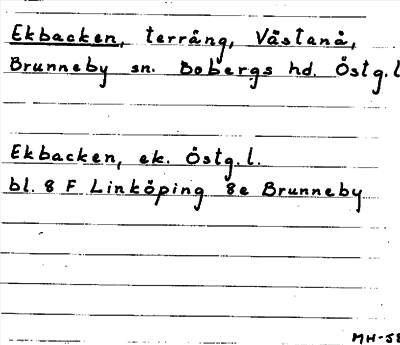 Ekbacken, terräng, Västanå,
Brunneby sn. Bobergs hd. Östg.l
Ekbacken, ek. Östg.l.
bl. 8 F Linköping 8e Brunneby
MH-58